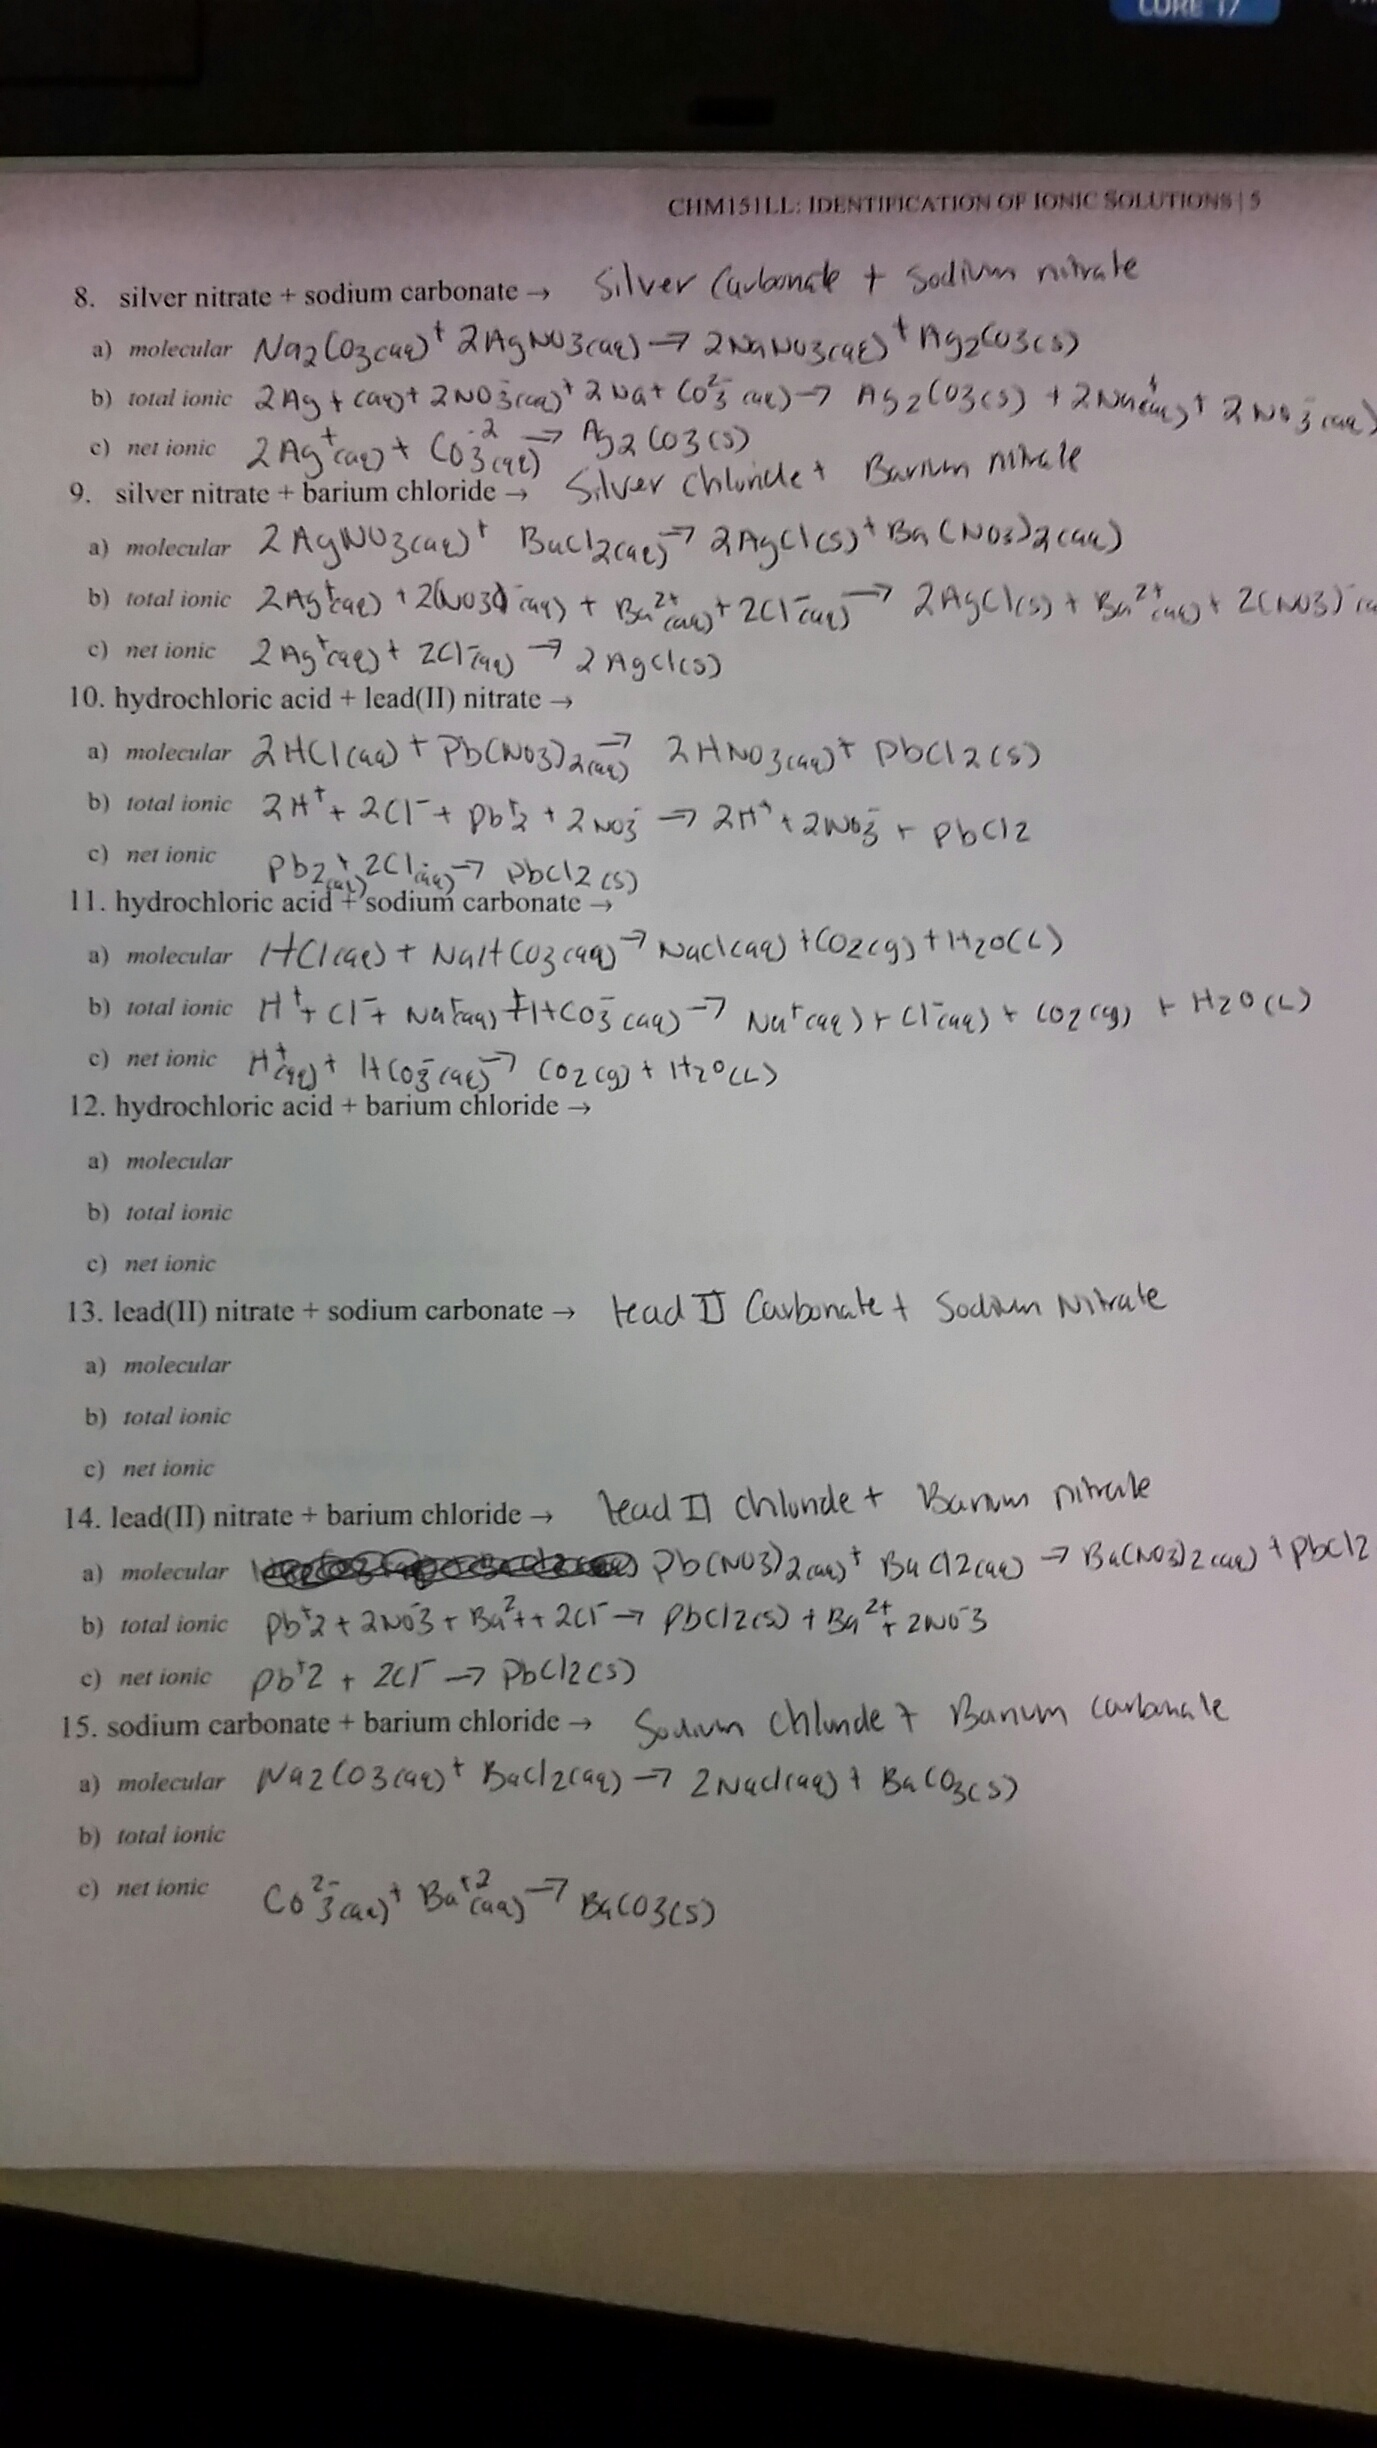 CORE i7
CHM151LL: IDENTIFICATION OF IONIC SOLUTIONS | 5
8. silver nitrate + sodium carbonate → Silver Carbonate + Sodium nitrate
a) molecular Na2CO3(aq) + 2AgNO3(aq) → 2NaNO3(aq) + Ag2CO3(s)
b) total ionic 2Ag+(aq) + 2NO3-(aq) + 2Na+ CO3^2-(aq) → Ag2CO3(s) + 2Na+(aq) + 2NO3-(aq)
c) net ionic 2Ag+(aq) + CO3^-2(aq) → Ag2CO3(s)
9. silver nitrate + barium chloride → Silver chloride + Barium nitrate
a) molecular 2AgNO3(aq) + BaCl2(aq) → 2AgCl(s) + Ba(NO3)2(aq)
b) total ionic 2Ag+(aq) + 2(NO3)-(aq) + Ba^2+(aq) + 2Cl-(aq) → 2AgCl(s) + Ba^2+(aq) + 2(NO3)-(a
c) net ionic 2Ag+(aq) + 2Cl-(aq) → 2AgCl(s)
10. hydrochloric acid + lead(II) nitrate →
a) molecular 2HCl(aq) + Pb(NO3)2(aq) → 2HNO3(aq) + PbCl2(s)
b) total ionic 2H+ + 2Cl- + Pb+2 + 2NO3- → 2H+ + 2NO3- + PbCl2
c) net ionic Pb2+(aq) 2Cl-(aq) → PbCl2(s)
11. hydrochloric acid + sodium carbonate →
a) molecular HCl(aq) + NaHCO3(aq) → NaCl(aq) + CO2(g) + H2O(L)
b) total ionic H+ + Cl- + Na+(aq) + HCO3-(aq) → Na+(aq) + Cl-(aq) + CO2(g) + H2O(L)
c) net ionic H+(aq) + HCO3-(aq) → CO2(g) + H2O(L)
12. hydrochloric acid + barium chloride →
a) molecular
b) total ionic
c) net ionic
13. lead(II) nitrate + sodium carbonate → lead II Carbonate + Sodium Nitrate
a) molecular
b) total ionic
c) net ionic
14. lead(II) nitrate + barium chloride → lead II chloride + Barium nitrate
a) molecular Pb(NO3)2(aq) + BaCl2(aq) → Ba(NO3)2(aq) + PbCl2
b) total ionic Pb+2 + 2NO-3 + Ba^2+ + 2Cl- → PbCl2(s) + Ba^2+ + 2NO-3
c) net ionic Pb+2 + 2Cl- → PbCl2(s)
15. sodium carbonate + barium chloride → Sodium Chloride + Barium carbonate
a) molecular Na2CO3(aq) + BaCl2(aq) → 2NaCl(aq) + BaCO3(s)
b) total ionic
c) net ionic CO3^2-(aq) + Ba+2(aq) → BaCO3(s)